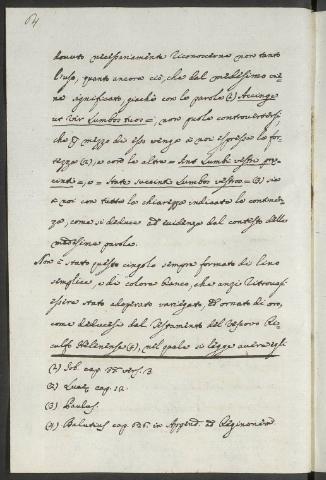 64
dovuto necessariamente riconoscerne non tanto
l'uso, quanto ancora ciò, che dal medesimo vie-
ne significato, giacchè con le parole (1) Accinge
ut Vir Lumbos tuos =, non puole controvertersi,
che p mezzo di esso venga a noi espressa la for-
tezza (2), e così le altre = Sint Lumbi vestri prae-
cincti =, o = State succinti Lumbos vestros = (3) sia
a noi con tutta la chiarezza indicata la continen-
za, come si deduce ad evidenza dal contesto delle
medesime parole.
Non è stato questo cingolo sempre formato di lino
semplice, e di colore bianco, che anzi ritrovasi
essere stato adoprato variegato, ed ornato di oro,
come deducesi dal Testamento del Vescovo Ri-
culfo Helenense (4), nel quale si legge avere egli
(1) Job. cap. 38. vers. 3
(2) Lucae cap. 12.
(3) Paulus.
(4) Balutius cap. 626. in Append. ad Reginonem